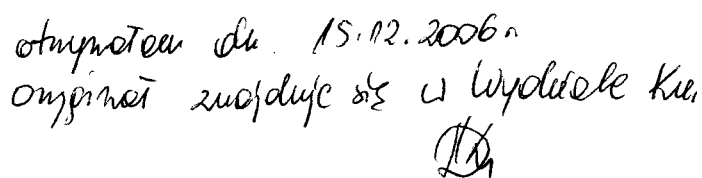 otrzymałem dn. 15.12.2006r
oryginał znajduje się w Wydziale